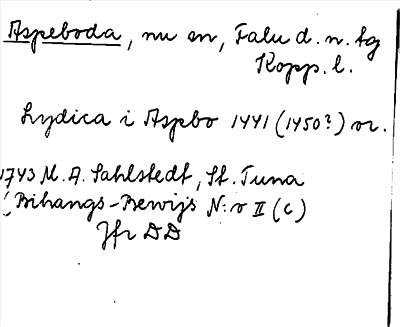 Aspeboda, nu sn, Falu d. n. tg
Kopp. l.
Lydica i Aspbo 1441 (1450?) or.
1743 M. A. Sahlstedt, St. Tuna
(Bihangs-Bewijs N:o II (c)
Jfr DD